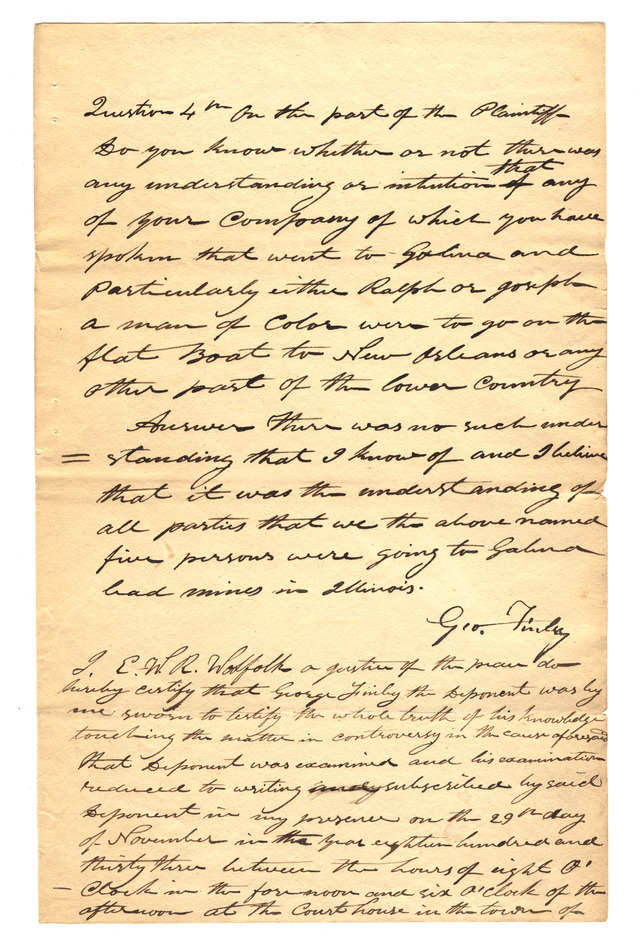 Question 4th On the part of the Plaintiff
Do you know whether or not there was
any understanding or intention that
of any
of your Company of which you have
spoken that went to Galina and
Particularly either Ralph or Joseph
a man of Color were to go on the
flat Boat to New Orleans or any
other part of the lower Country
Answer there was no such under
= standing that I know of and I believe
that it was the understanding of
all parties that we the above named
five persons were going to Galina
lead mines in Illinois.
Geo. Finley
I, E. W. R. Wolfolk a justice of the peace do
hereby certify that George Finley the Deponent was by
me sworn to testify the whole truth of his knowledge
touching the matter in controversy in the cause aforesaid
that Deponent was examined and his examination
reduced to writing and subscribed by said
Deponent in my presence on the 29th day
of November in the year eighteen hundred and
thirty three between the hours of eight O'
– Clock in the forenoon and six O'clock of the
afternoon at the Court house in the town of